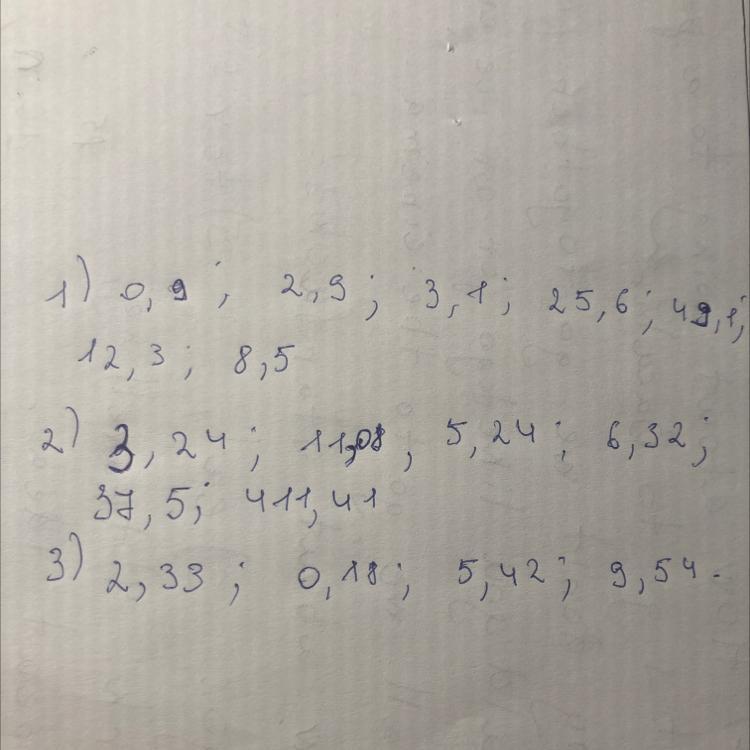 1) 0,9; 2,9; 3,1; 25,6; 49,1;
12,3; 8,5
2) 3,24; 11,08, 5,24; 6,32;
37,5; 411,41
3) 2,33; 0,18; 5,42; 9,54.